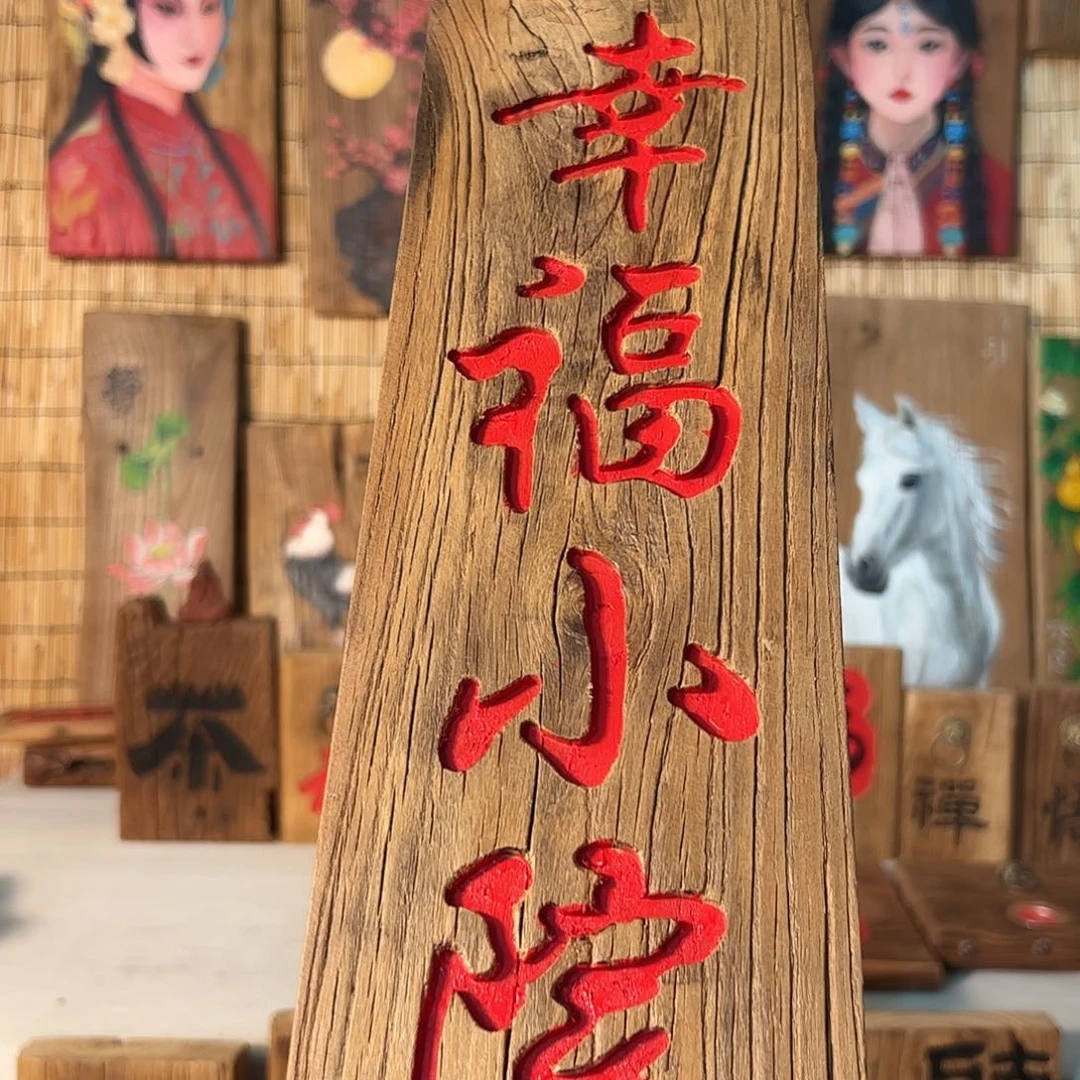 幸福小院
茶
禪